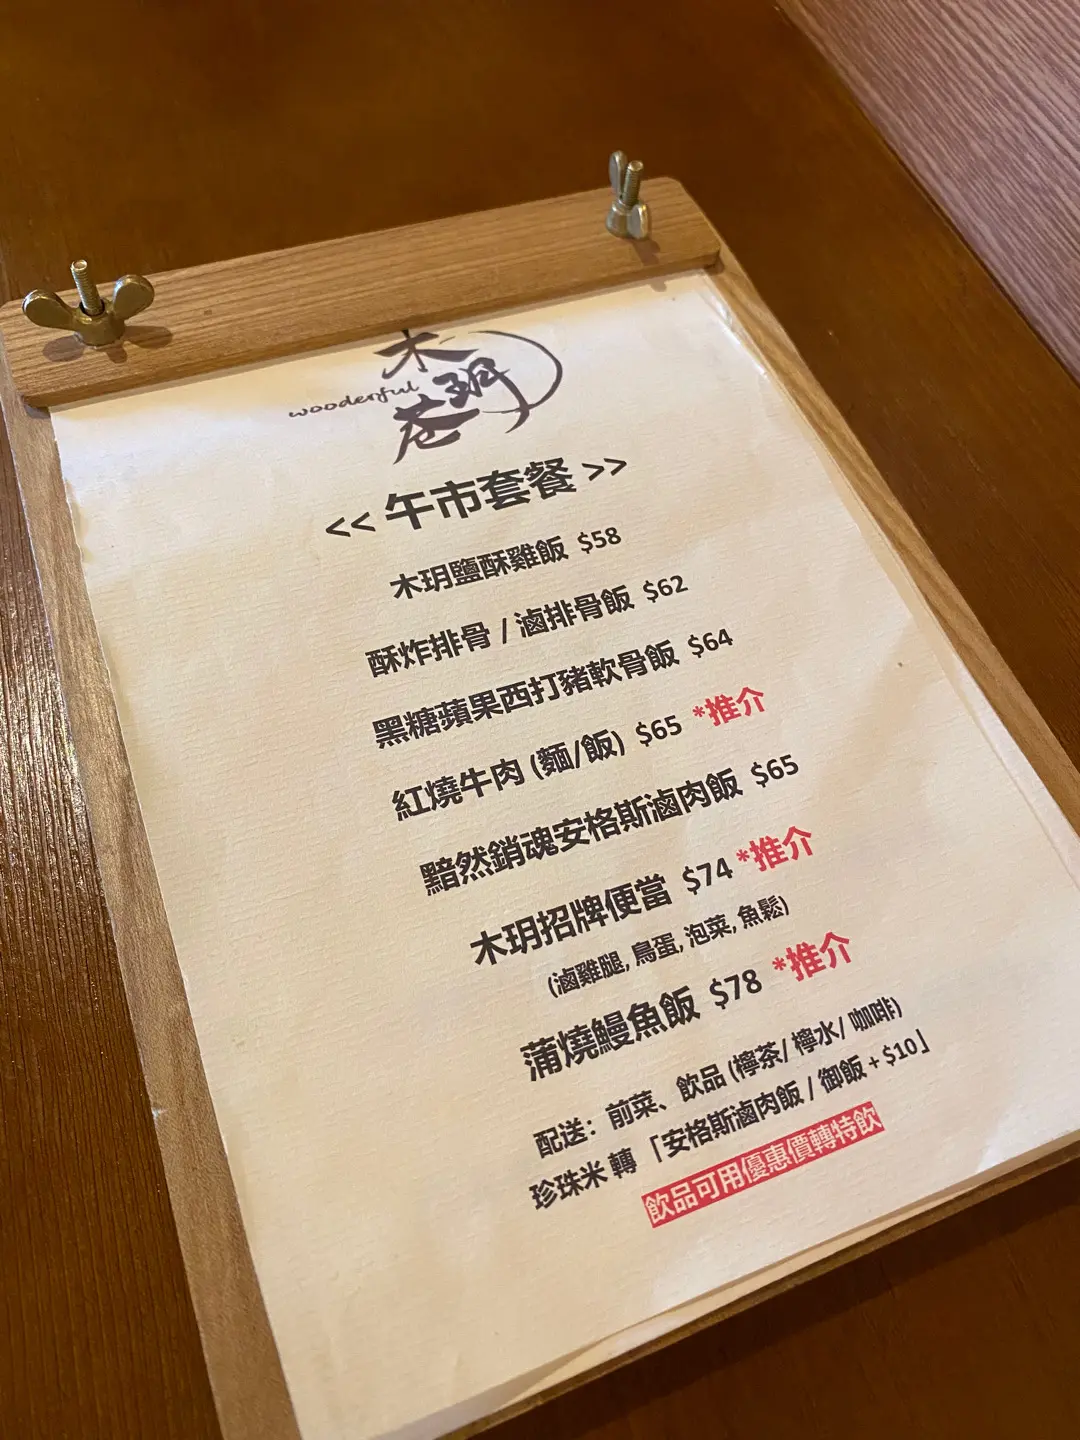 木玥
wooderful
巷
<< 午市套餐 >>
木玥鹽酥雞飯 $58
酥炸排骨 / 滷排骨飯 $62
黑糖蘋果西打豬軟骨飯 $64
紅燒牛肉 (麵/飯) $65 *推介
黯然銷魂安格斯滷肉飯 $65
木玥招牌便當 $74 *推介
(滷雞腿, 鳥蛋, 泡菜, 魚鬆)
蒲燒鰻魚飯 $78 *推介
配送：前菜、飲品 (檸茶/ 檸水/ 咖啡)
珍珠米 轉 「安格斯滷肉飯 / 御飯 + $10」
飲品可用優惠價轉特飲